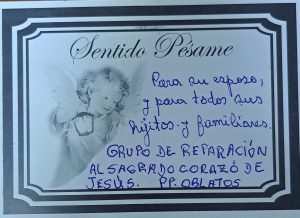 Sentido Pésame
Para su esposo,
y para todos sus
hijitos. y familiares.
GRUPO DE REPARACIÓN
AL SAGRADO CORAZÓ DE
JESÚS. PP. OBLATOS